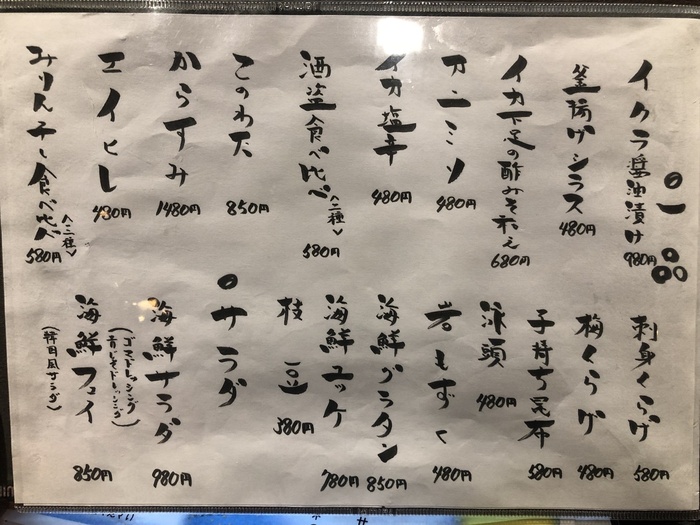 ○一品
イクラ醤油漬け
980円
釜揚げシラス
480円
イカ下足の酢みそ和え
680円
カニミソ
480円
イカ塩辛
480円
酒盗食べ比べ
<二種>
580円
このわた
850円
からすみ
1480円
エイヒレ
480円
みりん干し食べ比べ
<三種>
580円
刺身くらげ
580円
梅くらげ
480円
子持ち昆布
580円
氷頭
480円
岩もずく
480円
海鮮グラタン
850円
海鮮ユッケ
780円
枝豆
380円
○サラダ
海鮮サラダ
(ゴマドレッシング
青じそドレッシング)
980円
海鮮フェイ
(韓国風サラダ)
850円